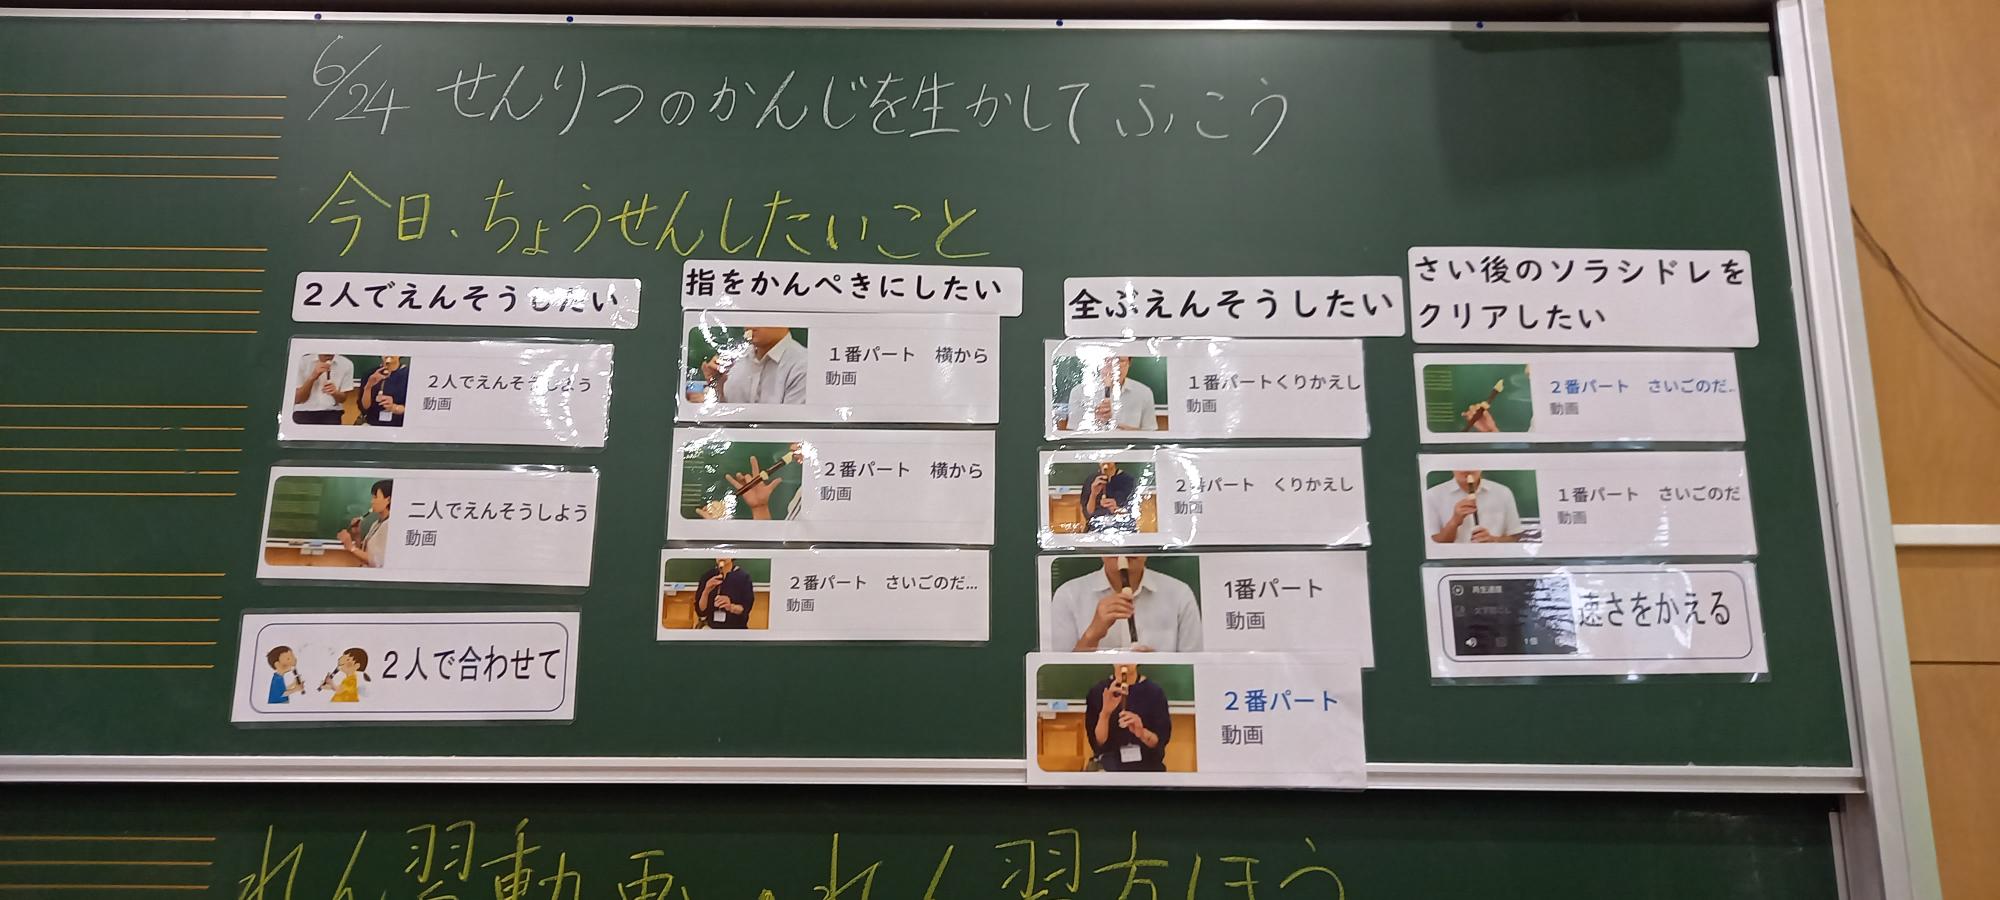 6/24 せんりつのかんじを生かしてふこう
今日、ちょうせんしたいこと
２人でえんそうしたい
２人でえんそうしよう
動画
二人でえんそうしよう
動画
２人で合わせて
指をかんぺきにしたい
１番パート 横から
動画
２番パート 横から
動画
２番パート さいごのだ...
動画
全ぶえんそうしたい
１番パートくりかえし
動画
２番パート くりかえし
動画
1番パート
動画
２番パート
動画
さい後のソラシドレを
クリアしたい
２番パート さいごのだ..
動画
１番パート さいごのだ
動画
再生速度
速さをかえる
れん習動画・れん習方ほう